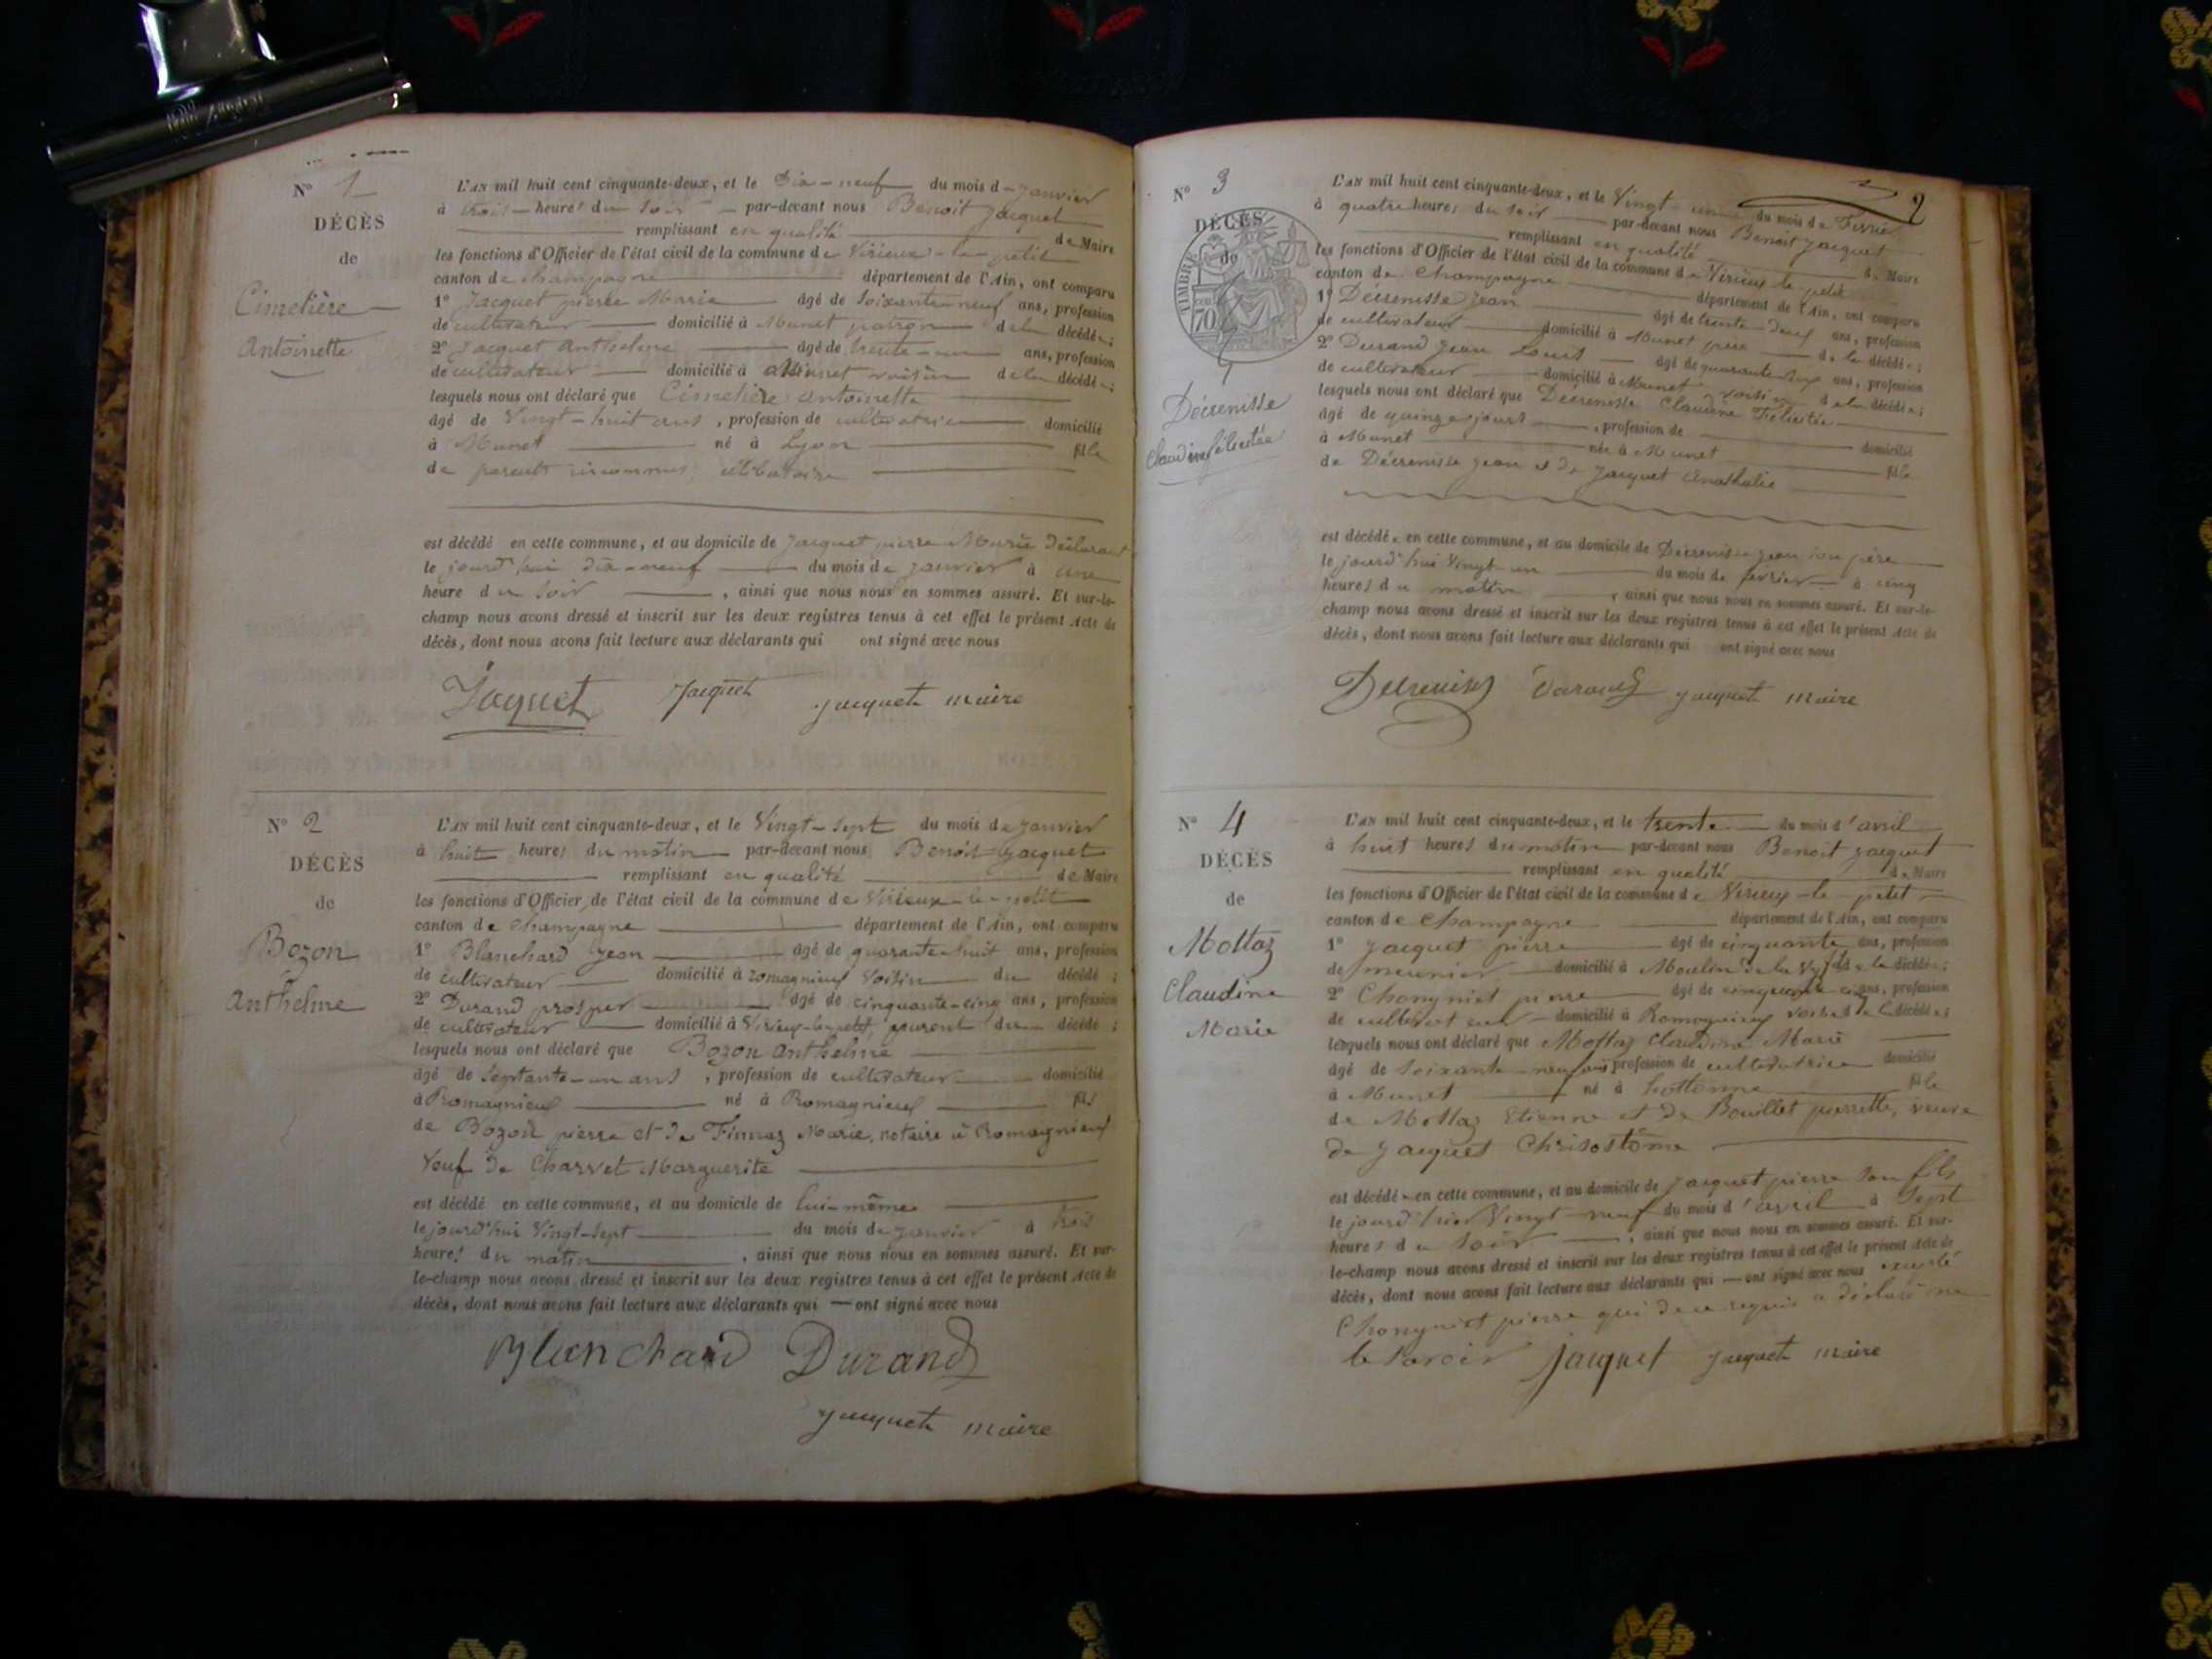 N° 1
DÉCÈS
de
Cimetière
Antoinette
L'AN mil huit cent cinquante-deux, et le Dix-neuf du mois de janvier
à trois heures du soir par-devant nous Benoit Jacquet
remplissant en qualité de Maire
les fonctions d'Officier de l'état civil de la commune de Virieux-le-petit
canton de Champagne département de l'Ain, ont comparu
1° Jacquet pierre Marie âgé de soixante-neuf ans, profession
de cultivateur domicilié à Munet patron de la décédée;
2° Jacquet Anthelme âgé de trente-un ans, profession
de cultivateur domicilié à Munet voisin de la décédée;
lesquels nous ont déclaré que Cimetière Antoinette
âgé de Vingt-huit ans, profession de cultivatrice domicilié
à Munet né à Lyon fille
de parents inconnus, célibataire
est décédé en cette commune, et au domicile de Jacquet pierre Marie Déclarant
le jourd'hui dix-neuf du mois de janvier à une
heure du soir, ainsi que nous nous en sommes assuré. Et sur-le-
champ nous avons dressé et inscrit sur les deux registres tenus à cet effet le présent Acte de
décès, dont nous avons fait lecture aux déclarants qui ont signé avec nous
Jaquet Jacquet jacquet maire
N° 2
DÉCÈS
de
Bozon
Anthelme
L'AN mil huit cent cinquante-deux, et le Vingt-sept du mois de janvier
à huit heures du matin par-devant nous Benoit Jacquet
remplissant en qualité de Maire
les fonctions d'Officier de l'état civil de la commune de Virieux-le-petit
canton de Champagne département de l'Ain, ont comparu
1° Blanchard Jean âgé de quarante-huit ans, profession
de cultivateur domicilié à romagnieux voisin du décédé;
2° Durand prosper âgé de cinquante-cinq ans, profession
de cultivateur domicilié à Virieux-le-petit, parent du décédé;
lesquels nous ont déclaré que Bozon Anthelme
âgé de septante-un ans, profession de cultivateur domicilié
à Romagnieux né à Romagnieux fils
de Bozon pierre et de Finnaz Marie, notaire à Romagnieux
Veuf de Charvet Marguerite
est décédé en cette commune, et au domicile de lui-même
le jourd'hui Vingt-sept du mois de janvier à trois
heures du matin, ainsi que nous nous en sommes assuré. Et sur-
le-champ nous avons dressé et inscrit sur les deux registres tenus à cet effet le présent Acte de
décès, dont nous avons fait lecture aux déclarants qui — ont signé avec nous
Blanchard Durand
jacquet maire
2
N° 3
DÉCÈS
de
TIMBRE
70
Décrenisse
Claudine Félicitée
L'AN mil huit cent cinquante-deux, et le Vingt-une du mois de Février
à quatre heures du soir par-devant nous Benoit Jacquet
remplissant en qualité de Maire
les fonctions d'Officier de l'état civil de la commune de Virieux-le-petit
canton de Champagne département de l'Ain, ont comparu
1° Décrenisse Jean âgé de trente-deux ans, profession
de cultivateur domicilié à Munet père de la décédée;
2° Durand Jean Louis âgé de quarante-six ans, profession
de cultivateur domicilié à Munet voisin de la décédée;
lesquels nous ont déclaré que Décrenisse Claudine Félicitée
âgé de quinze jours, profession de domicilié
à Munet née à Munet fille
de Décrenisse Jean et de Jacquet Anathalie
est décédée en cette commune, et au domicile de Décrenisse Jean son père
le jourd'hui Vingt-un du mois de février à cinq
heures du matin, ainsi que nous nous en sommes assuré. Et sur-le-
champ nous avons dressé et inscrit sur les deux registres tenus à cet effet le présent Acte de
décès, dont nous avons fait lecture aux déclarants qui ont signé avec nous
Durand jacquet maire
N° 4
DÉCÈS
de
Mottaz
Claudine
Marie
L'AN mil huit cent cinquante-deux, et le trente du mois d'avril
à huit heures du matin par-devant nous Benoit Jacquet
remplissant en qualité de Maire
les fonctions d'Officier de l'état civil de la commune de Virieux-le-petit
canton de Champagne département de l'Ain, ont comparu
1° Jacquet pierre âgé de cinquante ans, profession
de meunier domicilié à Moulin de la fils de la décédée;
2° Chongniet pierre âgé de cinquante-cinq ans, profession
de cultivateur domicilié à Romagnieux voisin de la décédée;
lesquels nous ont déclaré que Mottaz Claudine Marie
âgé de soixante-neuf ans profession de cultivatrice domicilié
à Munet né à hottonne fille
de Mottaz Etienne et de Bouillet pierrette, veuve
de Jacquet Chrisostôme
est décédée en cette commune, et au domicile de Jacquet pierre son fils
le jourd'hier Vingt-neuf du mois d'avril à sept
heures du soir, ainsi que nous nous en sommes assuré. Et sur-
le-champ nous avons dressé et inscrit sur les deux registres tenus à cet effet le présent Acte de
décès, dont nous avons fait lecture aux déclarants qui — ont signé avec nous excepté
Chongniet pierre qui de ce requis a déclaré ne
le savoir Jacquet jacquet maire